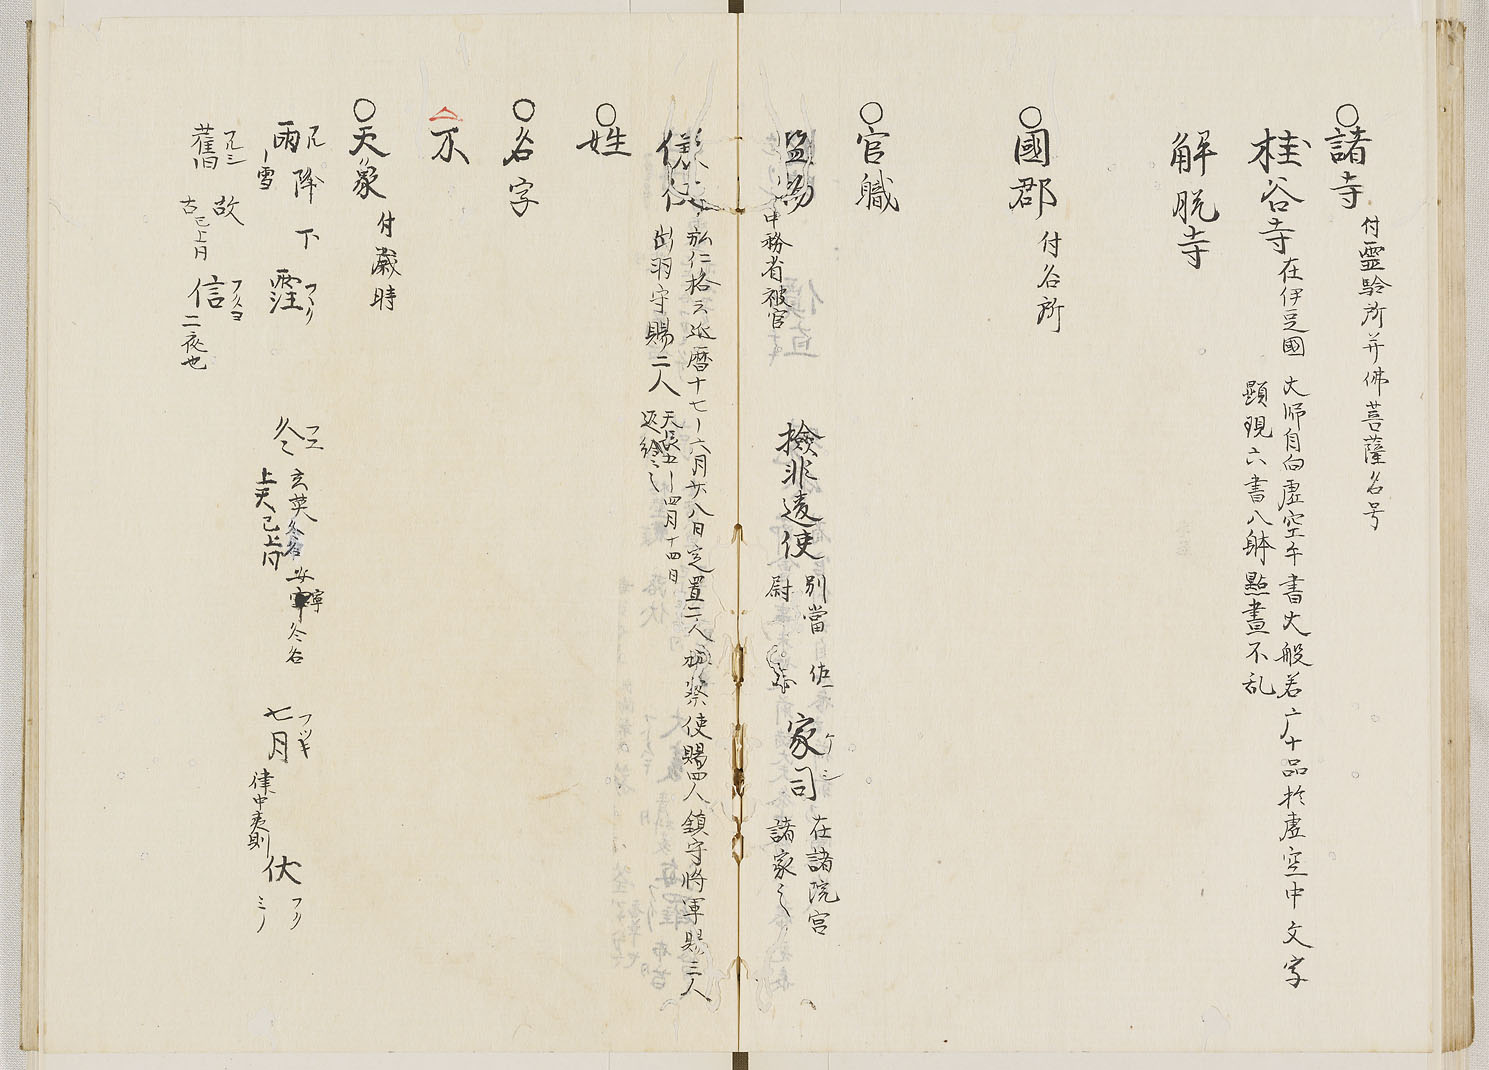 ○諸寺 付霊験所并佛菩薩名号
桂谷寺 在伊豆國 大師自向虚空書大般若 广十品於虚空中文字
顕現六書八躰點畫不乱
解脱寺
○國郡 付名所
○官職
監物 中務省被官
撿非違使 別當 佐
尉
家司 ケシ 在諸院宮
諸家之
儀仗 弘仁格云延暦十七六月廿八日定置二人 按察使賜四人鎮守将軍賜三人
出羽守賜二人 天長五四月十四日
○姓
○名字
不
○天象 付歳時
雨 雪 降 下 霔 フリ
舊 故 古已上同 信 フリヨ 二夜也
冬 フユ 玄英 冬名 安寧 冬名
上天已上同
七月 律中夷則
伏 フリ